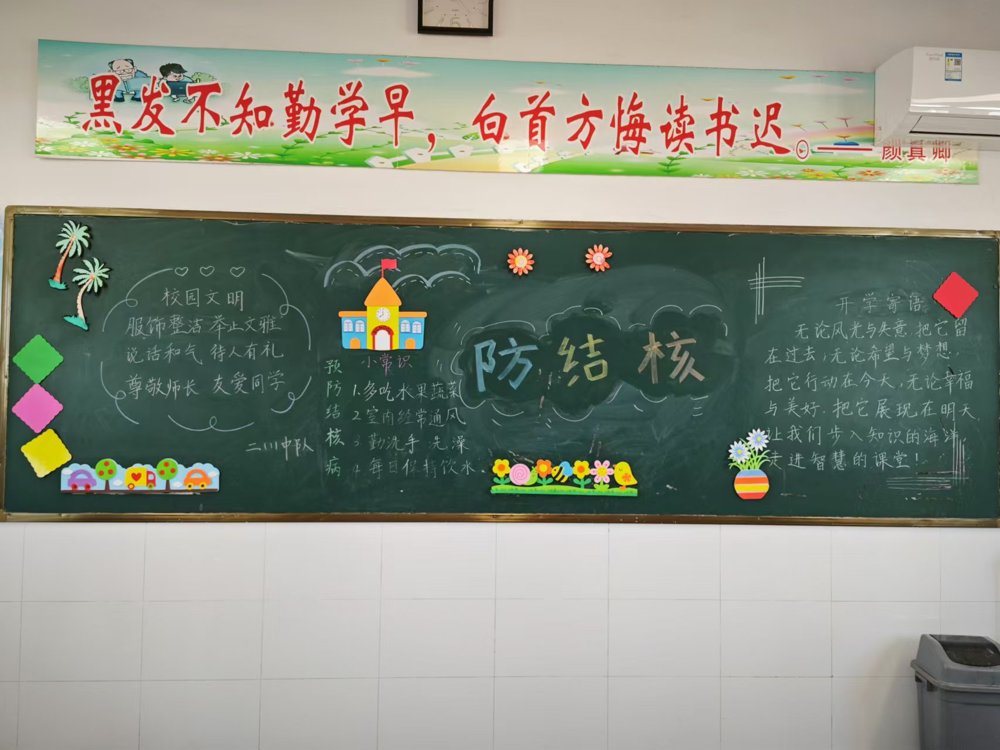 黑发不知勤学早，白首方悔读书迟。——颜真卿
校园文明
服饰整洁 举止文雅
说话和气 待人有礼
尊敬师长 友爱同学
二(1)中队
预防结核病
小常识
1.多吃水果蔬菜
2.室内经常通风
3.勤洗手 洗澡
4.每日保持饮水.
防结核
开学寄语
无论风光与失意,把它留
在过去,无论希望与梦想
把它行动在今天,无论幸福
与美好.把它展现在明天.
让我们步入知识的海洋,
走进智慧的课堂!